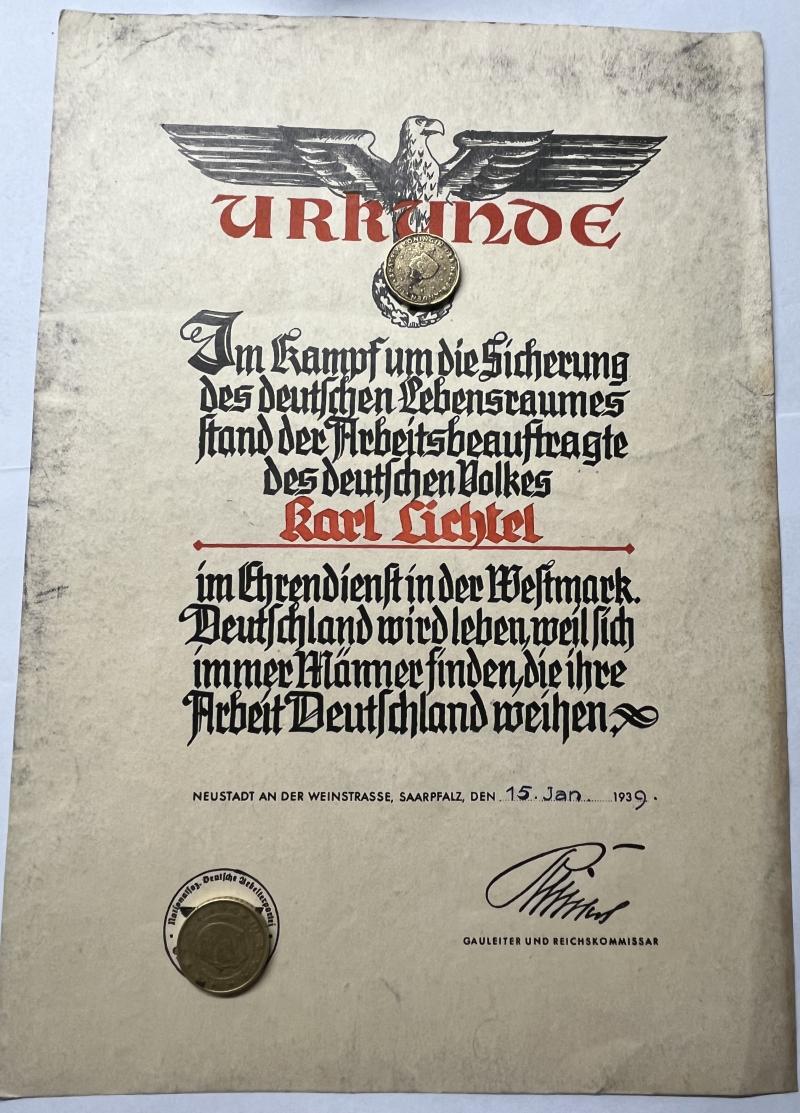 URKUNDE
Im Kampf um die Sicherung
des deutschen Lebensraumes
stand der Arbeitsbeauftragte
des deutschen Volkes
Karl Lichtel
im Ehrendienst in der Westmark.
Deutschland wird leben, weil sich
immer Männer finden, die ihre
Arbeit Deutschland weihen.
NEUSTADT AN DER WEINSTRASSE, SAARPFALZ, DEN 15. Jan. 1939.
Nationalsoz. Deutsche Arbeiterpartei
GAULEITER UND REICHSKOMMISSAR